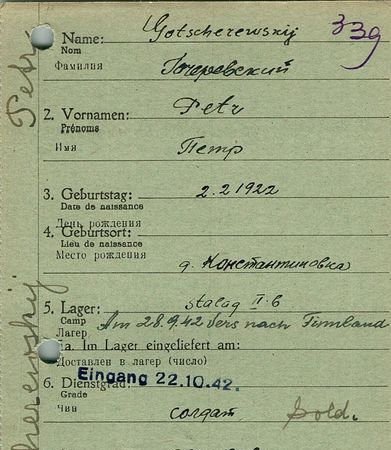 339
1. Name: Gotscherewskij
Nom
Фамилия Гочеревский
2. Vornamen: Petr
Prénoms
Имя Петр
3. Geburtstag: 2.2 1922
Date de naissance
День рождения
4. Geburtsort:
Lieu de naissance
Место рождения д. Константиновка
5. Lager: Stalag II-B
Camp Am 28.9.42 Vers nach Finnland
Лагер
5a. Im Lager eingeliefert am:
Доставлен в лагер (число)
Eingang 22.10.42.
6. Dienstgrad:
Grade
Чин солдат Sold.
Petr
herewskij